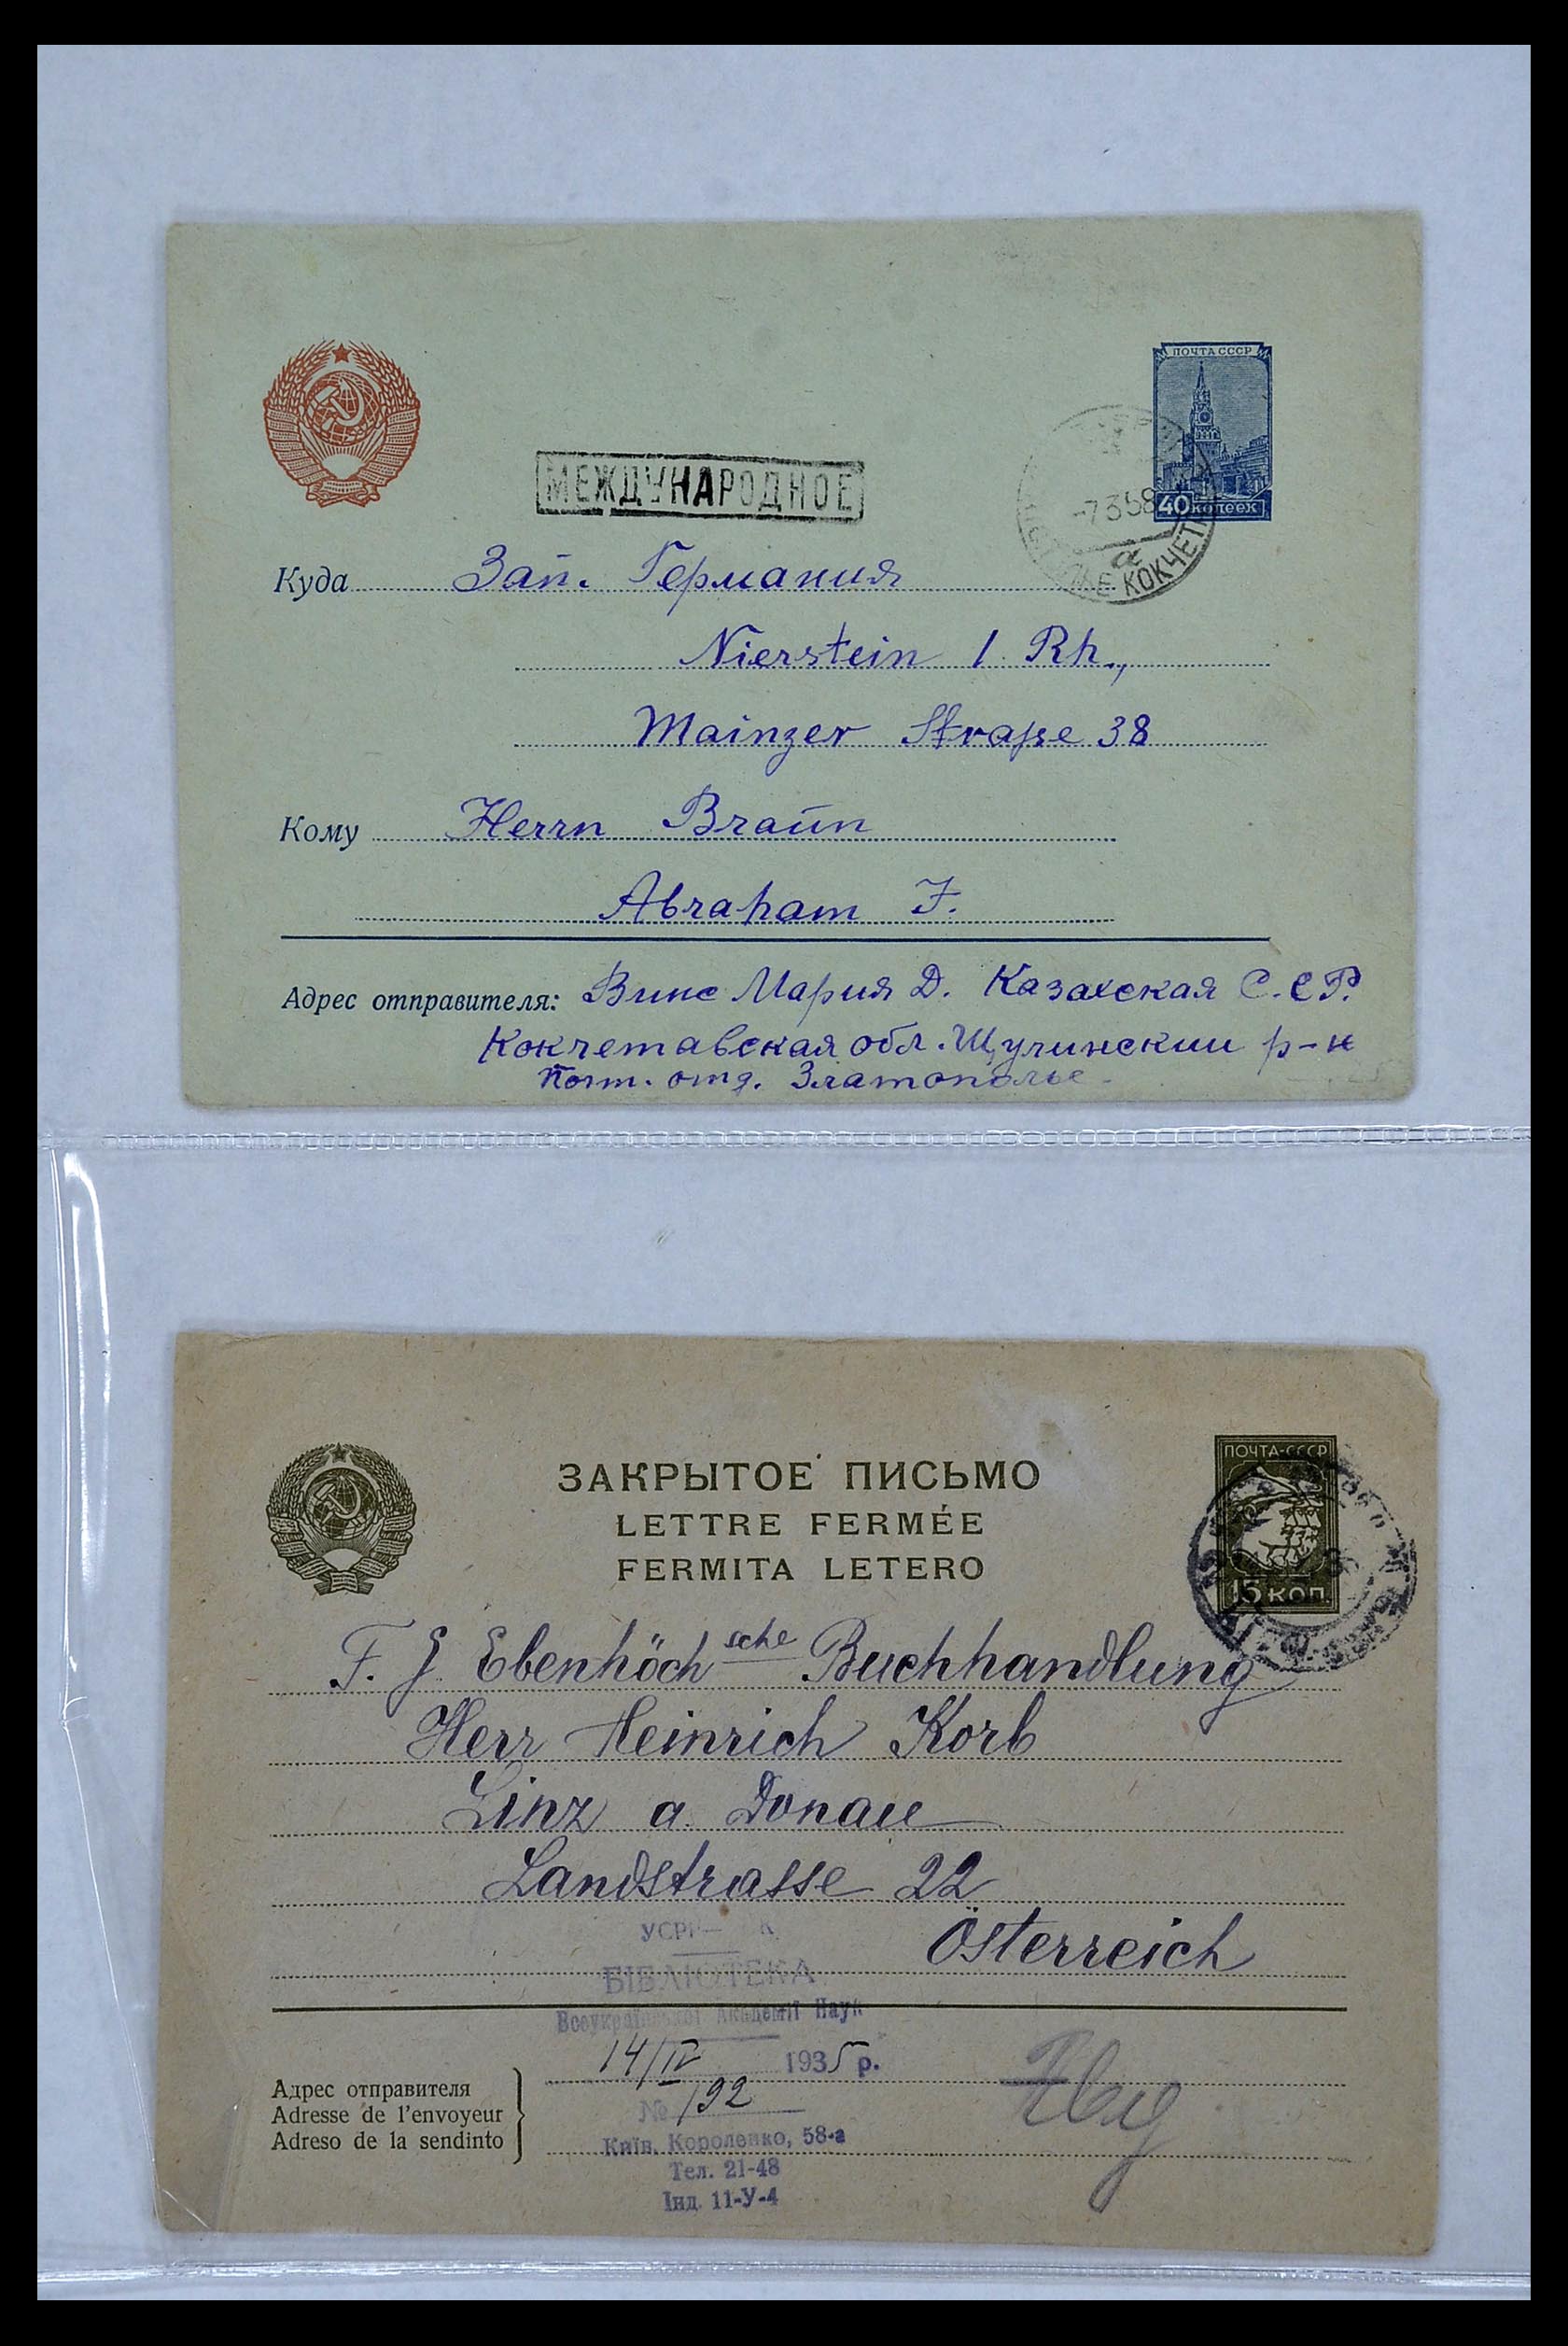 ПОЧТА СССР
40 копеек
МЕЖДУНАРОДНОЕ
-7358
а
КОКЧЕТ
Куда Зап. Германия
Nierstein / Rh.,
Mainzer Straße 38
Кому Herrn Braun
Abraham F.
Адрес отправителя: Винс Мария Д. Казахская С.СР.
Кокчетавская обл. Щучинскии р-н
Почт. отд. Златополье
ПОЧТА-СССР
15 коп.
ЗАКРЫТОЕ ПИСЬМО
LETTRE FERMÉE
FERMITA LETERO
F. J Ebenhöch sche Buchhandlung
Herr Heinrich Korb
Linz a Donau
Landstrasse 22
Österreich
БІБЛІОТЕКА
Всеукраїнської Академії Наук
14/IV 1935 р.
№ 192
Київ, Короленко, 58-а
Тел. 21-48
Інд. 11-У-4
Адрес отправителя
Adresse de l'envoyeur
Adreso de la sendinto